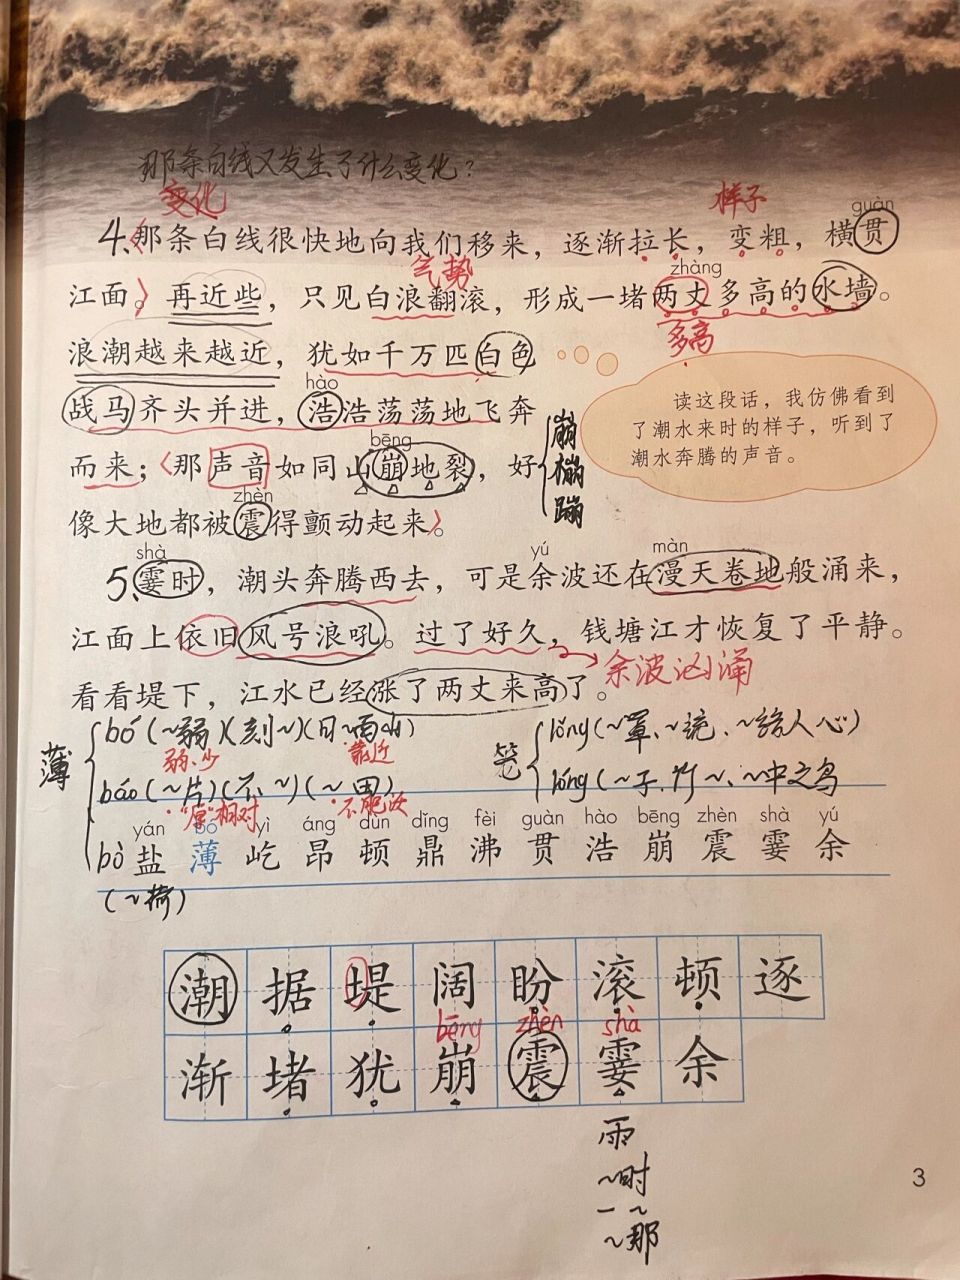 那条白线又发生了什么变化？
变化 样子
guàn
4、那条白线很快地向我们移来，逐渐拉长，变粗，横贯
气势 zhàng
江面。再近些，只见白浪翻滚，形成一堵两丈多高的水墙。
多高
浪潮越来越近，犹如千万匹白色
hào
战马齐头并进，浩浩荡荡地飞奔
bēng
而来；那声音如同山崩地裂，好
zhèn
像大地都被震得颤动起来。
崩
嘣
蹦
读这段话，我仿佛看到
了潮水来时的样子，听到了
潮水奔腾的声音。
shà yú màn
5、霎时，潮头奔腾西去，可是余波还在漫天卷地般涌来，
江面上依旧风号浪吼。过了好久，钱塘江才恢复了平静。
余波汹涌
看看堤下，江水已经涨了两丈来高了。
薄
bó（~弱）（刻~）（日~西山）
弱、少 靠近
báo（~片）（不~）（~田）
“厚”相对 不肥沃
bò
（~荷）
笼
lǒng（~罩、~统、~络人心）
lóng（~子、竹~、~中之鸟
yán bó yì áng dùn dǐng fèi guàn hào bēng zhèn shà yú
盐 薄 屹 昂 顿 鼎 沸 贯 浩 崩 震 霎 余
潮 据 堤 阔 盼 滚 顿 逐
bēng zhèn shà
渐 堵 犹 崩 震 霎 余
雨
~时
一~
~那
3